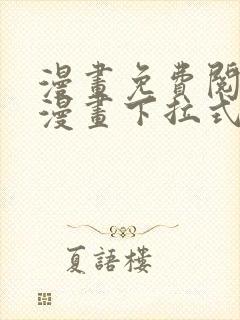 漫畫免費閱
漫畫下拉式
夏語樓